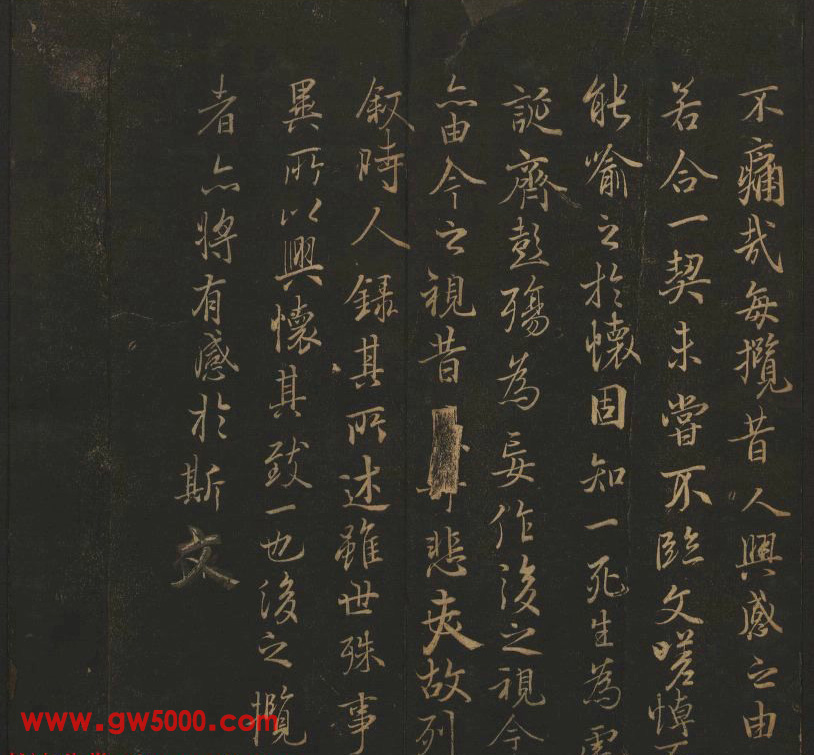 不痛哉每攬昔人興感之由
若合一契未嘗不臨文嗟悼
能喻之於懷固知一死生為
誕齊彭殤為妄作後之視今
亦由今之視昔悲夫故列
叙時人錄其所述雖世殊事
異所以興懷其致一也後之攬
者亦將有感於斯文
www.gw5000.com